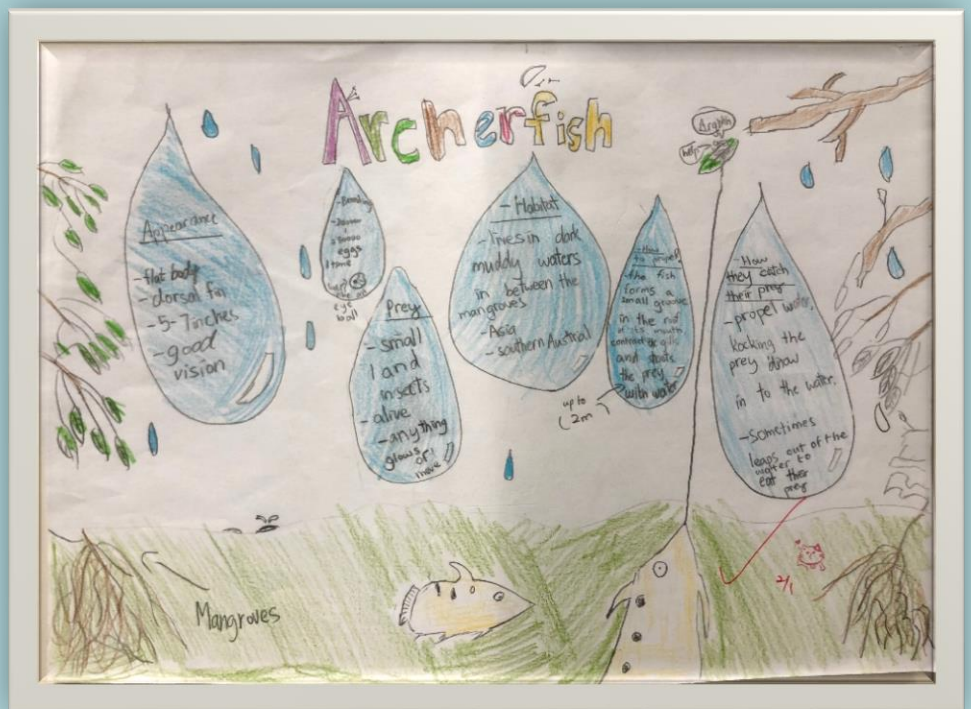 Archerfish
Appearance
-flat body
-dorsal fin
-5-7inches
-good
vision
eggs
1 time
eye
ball
Prey
-small
land
insects
-alive
-anything
glows or
move
-Habitat
-lives in dark
muddy waters
in between the
mangroves
-Asia
-southern Austrial
-How
to propel
-the fish
forms a
small groove
in the roof
of its mouth
and
the prey
with water
up to
2m
help
-How
they catch
their prey
-propel water,
kocking the
prey
in to the water.
-Sometimes
leaps out of the
water to
eat ther
prey
Mangroves
2/1